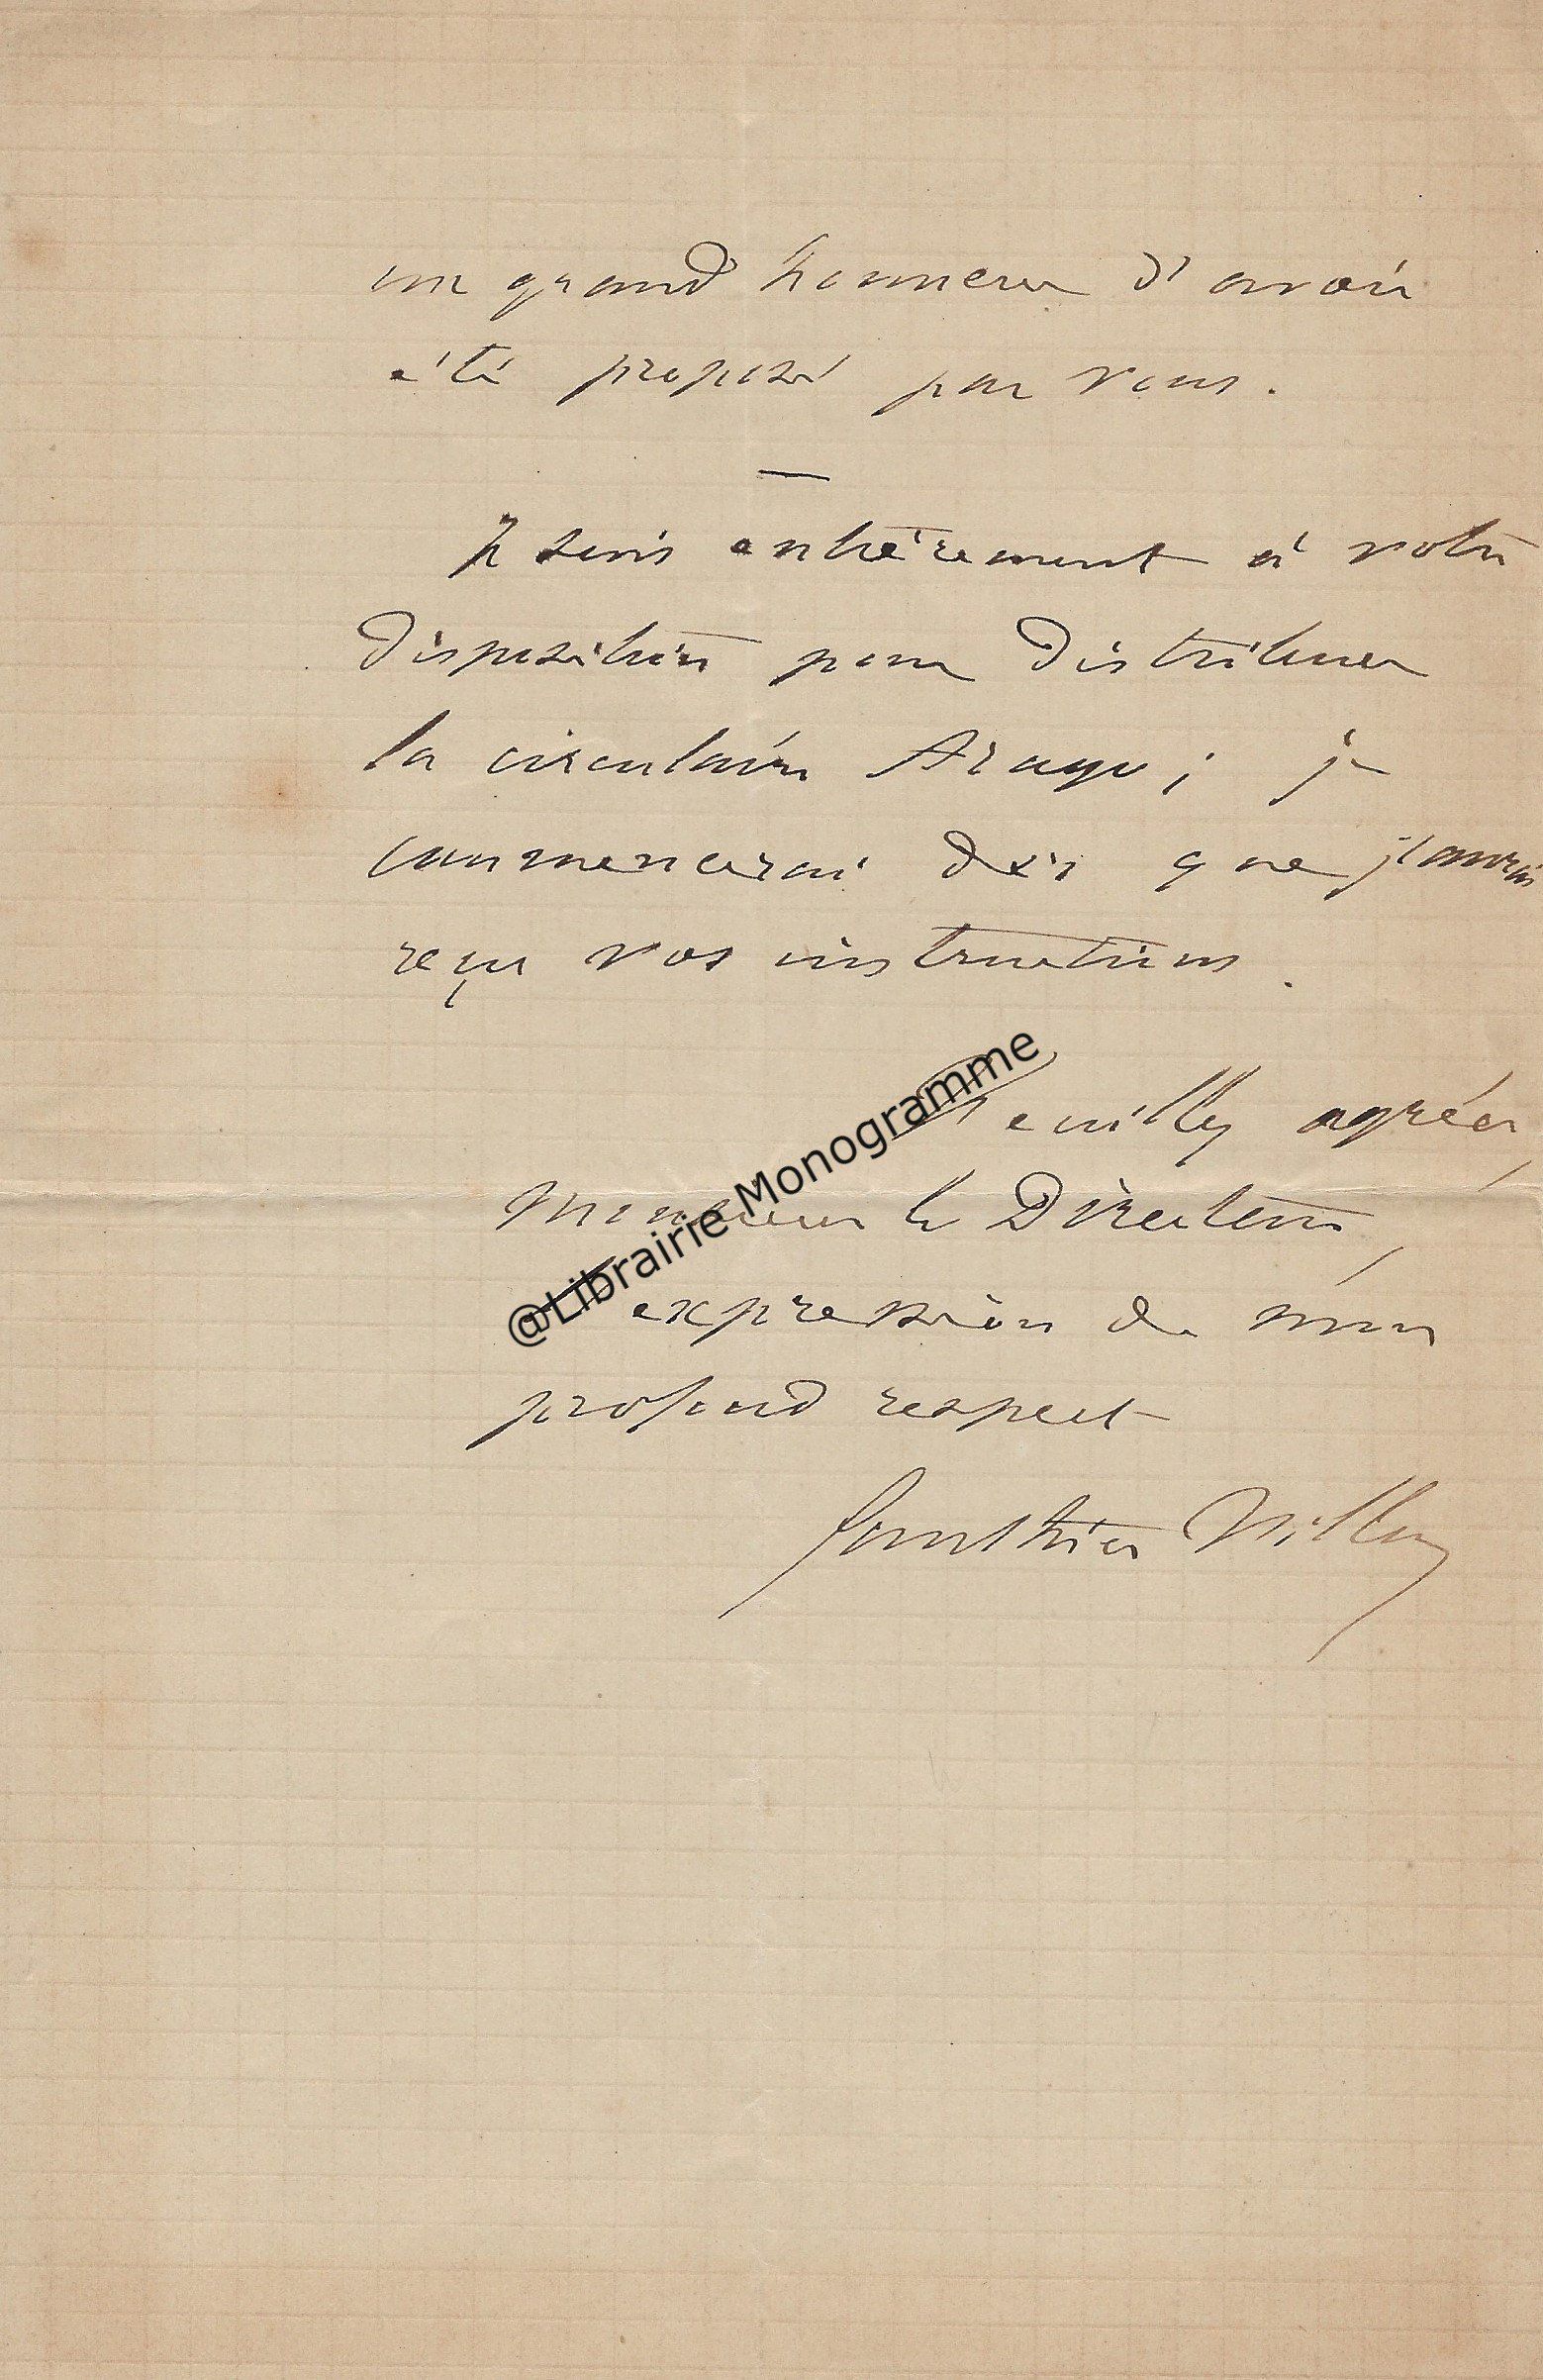 un grand honneur d'avoir
été proposé par vous.
—
Je suis entièrement à votre
disposition pour distribuer
la circulaire Arago ; je
commencerai dès que j'aurai
reçu vos instructions.
Veuillez agréer,
Monsieur le Directeur,
l'expression de mon
profond respect
Gauthier Villars
@Librairie Monogramme